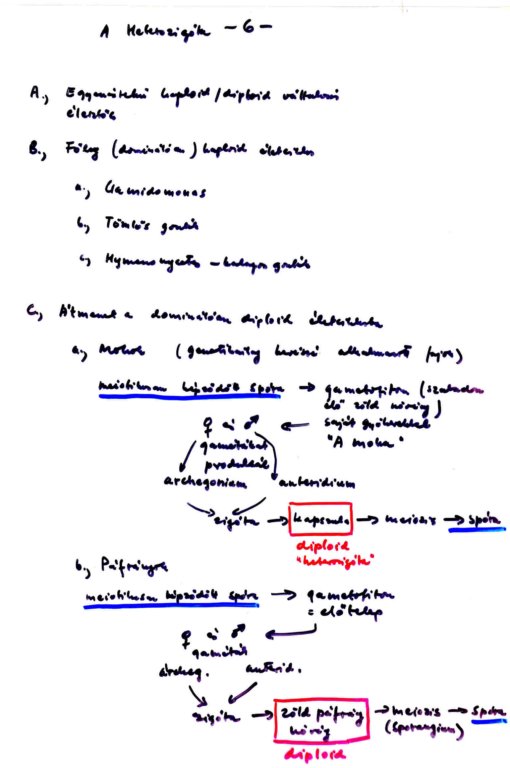 A Heterozigóta - 6 -
A., Egyenértékű haploid/diploid váltakozó
élesztők
B., Főleg (domináns) haploid életciklus
a., Clamidomonas
b., Tömlős gombák
c., Hymenomycetes - kalapos gombák
C., Átmenet a dominánsan diploid életciklusba
a., Mohok (genetikailag kevéssé alkalmazott)
meiotikusan képződött spóra → gametofiton (szabadon
élő zöld növény)
♀ és ♂ ← saját gyökerekkel
gamétákat "A moha"
produkál
archegonium anteridium
zigóta → kapszula → meiozis → spóra
diploid
"heterozigóta"
b., Páfrányok
meiotikusan képződött spóra → gametofiton
= előtelep
♀ és ♂
gaméták
archeg. anterid.
zigóta → zöld páfrány → meiozis → spóra
növény (sporangium)
diploid